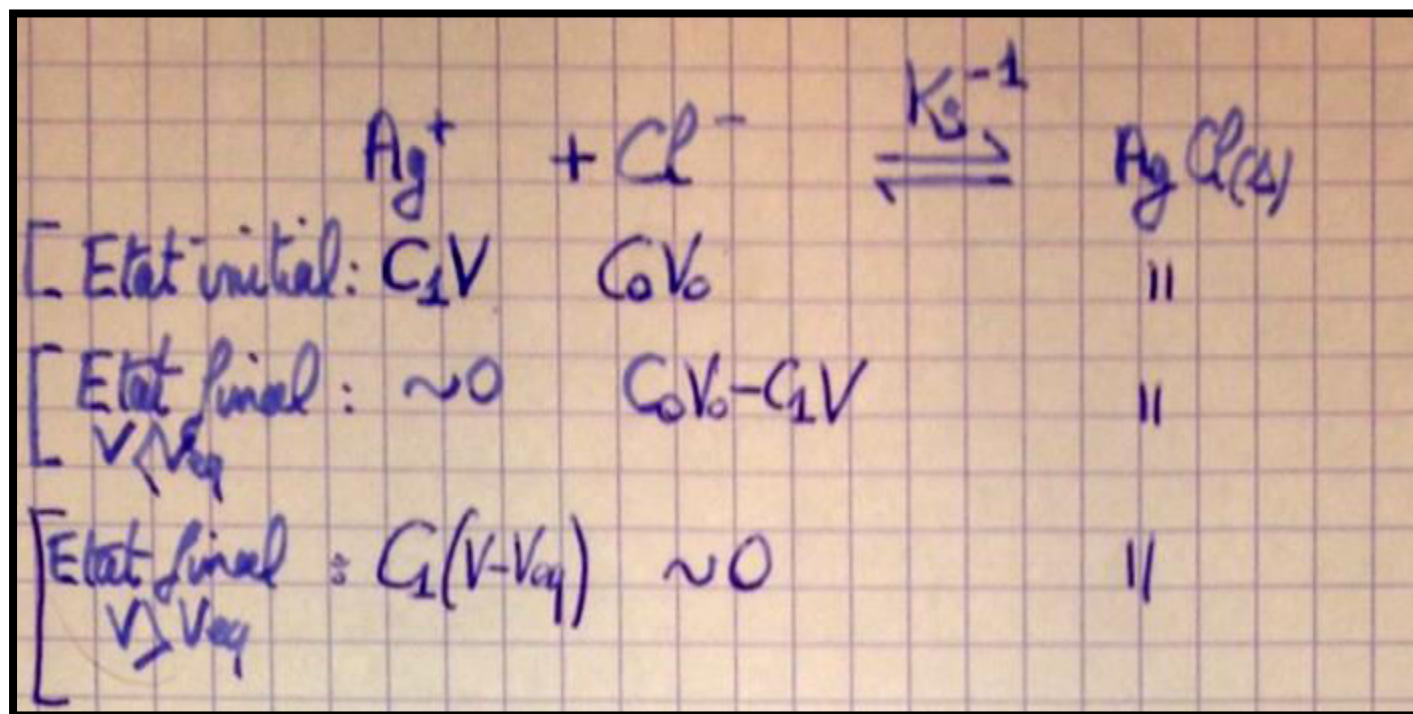 Ag⁺ + Cl⁻ ⇌ Ks⁻¹ AgCl(s)
[ Etat initial : C₁V C₀V₀ "
[ Etat final : ~0 C₀V₀-C₁V "
V<Veq
[ Etat final : C₁(V-Veq) ~0 "
V>Veq